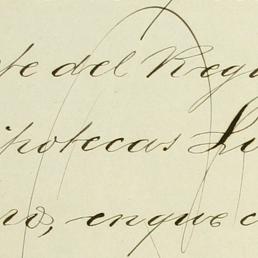 te del Regi
ipotecas Lu
no, en que c